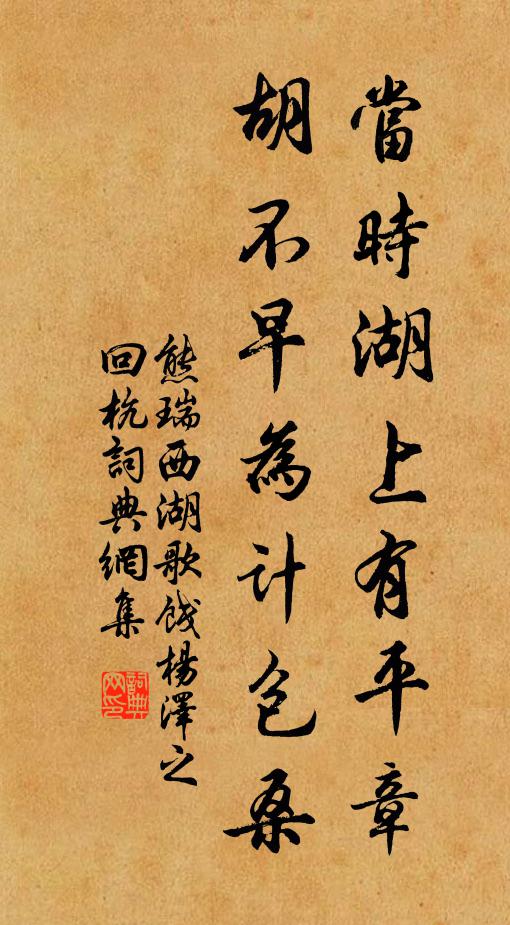 當時湖上有平章
胡不早為計包桑
熊瑞西湖歌餞楊澤之
回杭詞典網集
詞典網印